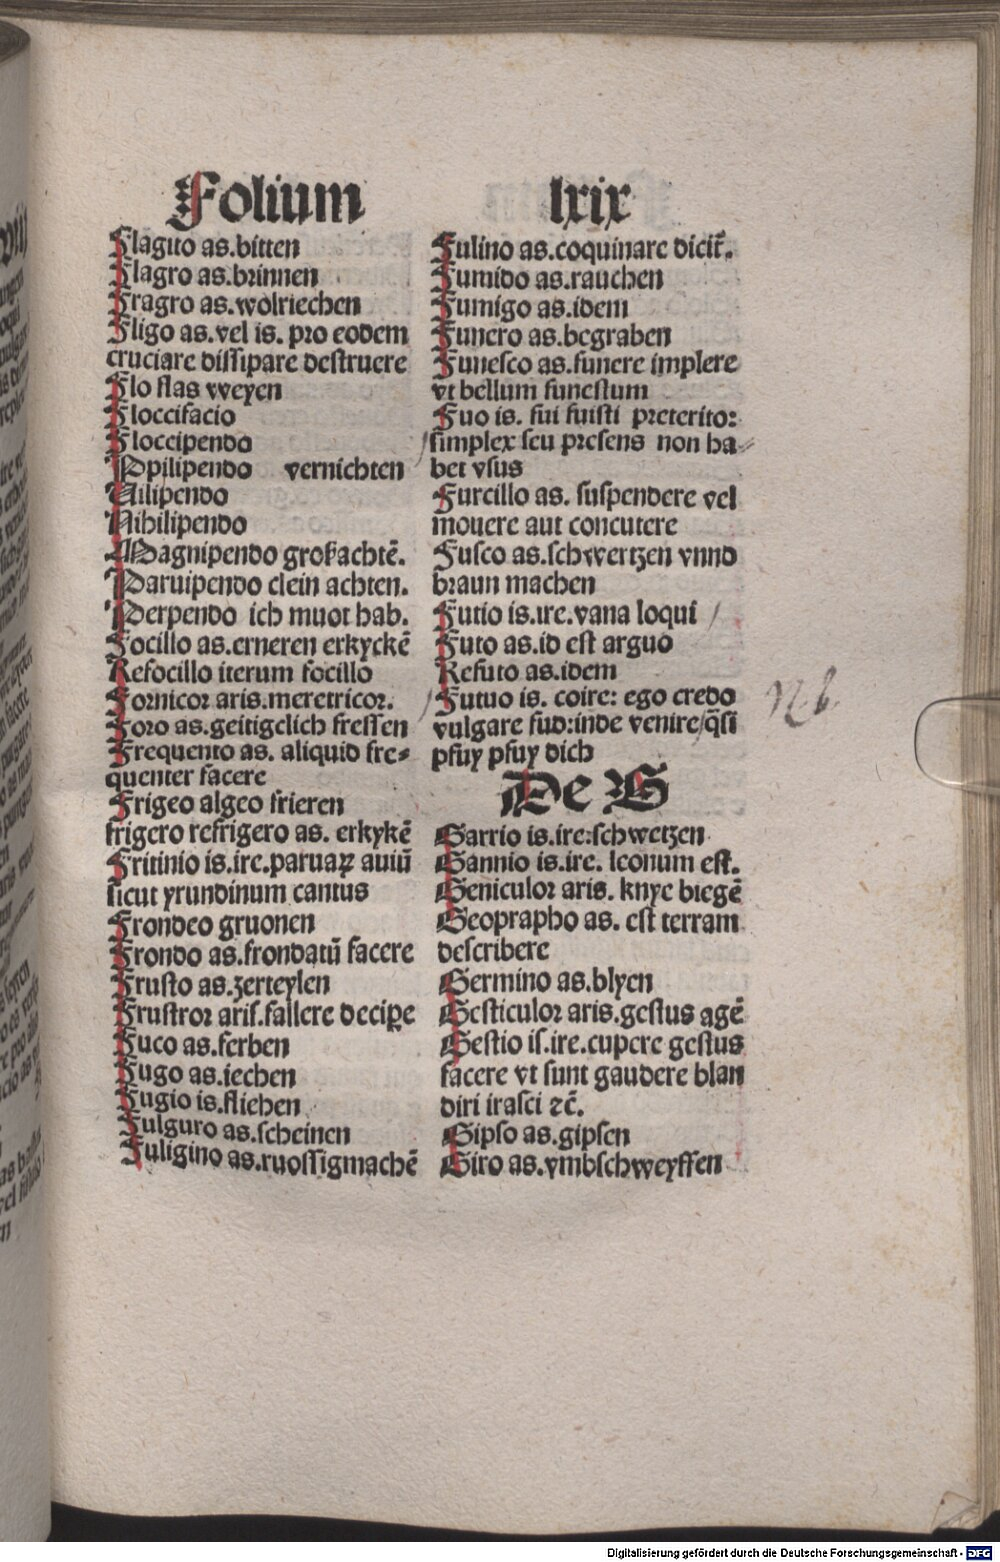 Folium lxix
Flagito as.bitten
Flagro as.brinnen
Fragro as.wolriechen
Fligo as.vel is. pro eodem
cruciare dissipare destruere
Flo flas weyen
Floccifacio
Floccipendo
Ppilipendo vernichten
Nilipendo
Nihilipendo
Magnipendo großachtē.
Paruipendo clein achten.
Perpendo ich muot hab.
Focillo as.erneren erkyckē
Refocillo iterum focillo
Fornicor aris.meretricor.
Foro as.geitigclich fressen
Frequento as. aliquid fre⸗
quenter facere
Frigeo algeo frieren
frigero refrigero as. erkykē
Fritinio is.ire.paruaꝝ auiū
sicut yrundinum cantus
Frondeo gruonen
Frondo as.frondatū facere
Frusto as.zerteylen
Frustror arif.fallere decipe
Fuco as.ferben
Fugo as.iechen
Fugio is.fliehen
Fulguro as.scheinen
Fuligino as.ruossigmachē
Fulino as.coquinare dicit̃.
Fumido as.rauchen
Fumigo as.idem
Funero as.begraben
Funesco as.funere implere
vt bellum funestum
Fuo is. fui fuisti preterito:
simplex seu presens non ha⸗
bet vsus
Furcillo as. suspendere vel
mouere aut concutere
Fusco as.schwertzen vnnd
braun machen
Futio is.ire.vana loqui
Futo as.id est arguo
Refuto as.idem
Futuo is. coire: ego credo
vulgare sud:inde venire/q̄si
pfuy pfuy dich
N.b.
De G
Garrio is.ire:schwetzen
Gannio is.ire. leonum est.
Geniculor aris. knye biegē
Geoprapho as. est terram
describere
Germino as.blyen
Gesticulor aris.gestus agē
Gestio is.ire.cupere gestus
facere vt sunt gaudere blan
diri irasci ⁊c̄.
Gipso as.gipsen
Giro as.vmbschweyffen
Digitalisierung gefördert durch die Deutsche Forschungsgemeinschaft - DFG